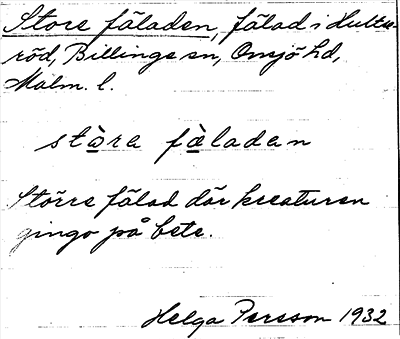 Store fäladen, fälad i Hultu-
röd, Billinge sn, Onsjö hd,
Malm. l.
stòra fàladen
Större fälad där kreaturen
gingo på bete.
Helga Persson 1932